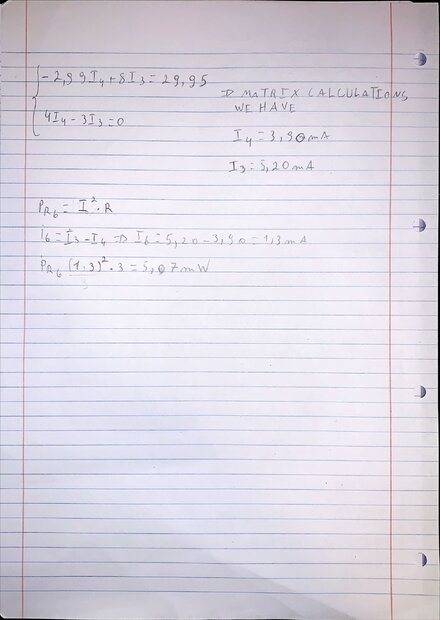 -2,99I4+8I3=29,95
⇒ MATRIX CALCULATIONS
WE HAVE
4I4-3I3=0
I4=3,90mA
I3=5,20mA
PR6=I²·R
I6=I3-I4 ⇒ I6=5,20-3,90=1,3mA
PR6 (1,3)²·3=5,07mW